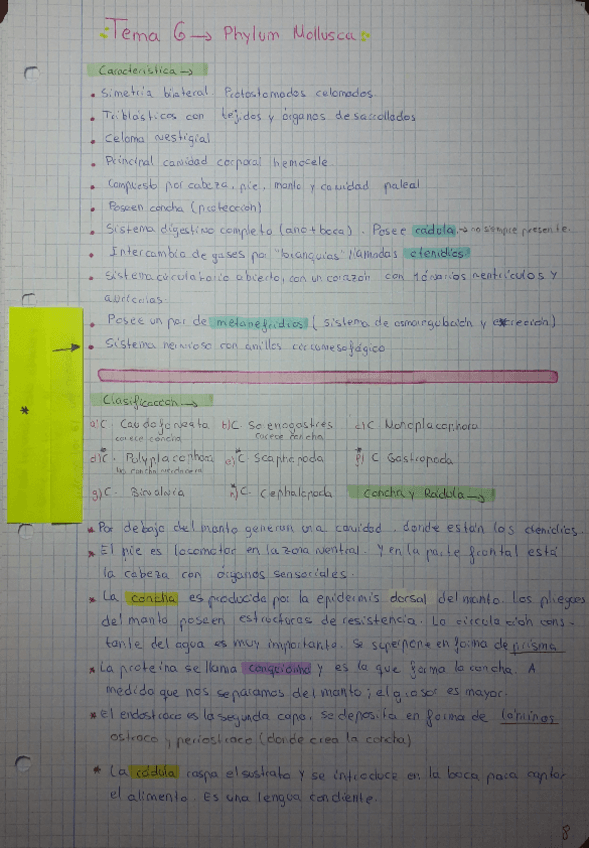 Tema 6 → Phylum Mollusca
Característica →
• Simetría bilateral Protostomados celomados.
• Triblásticos con tejidos y órganos desarrollados
• Celoma vestigial
• Principal cavidad corporal hemocele
• Compuesto por cabeza, pie, manto y cavidad paleal
• Poseen concha (protección)
• Sistema digestivo completo (ano+boca). Posee rádula → no siempre presente.
• Intercambio de gases por "branquias" llamadas ctenidios
• Sistema circulatorio abierto, con un corazón con 1ó varios ventrículos y
aurículas.
• Posee un par de metanefridios (sistema de osmorgubación y excreción)
• Sistema nervioso con anillos circumesofágico
*
Clasificación →
a) C. Caudofoveata b) C. Solenogastres c) C Monoplacophora
carece concha carece concha
d) C. Polyplacophora e) C Scaphopoda f) C Gastropoda
g) C. Bivalvia h) C. Cephalopoda Concha y Rádula →
* Por debajo del manto generan una cavidad, donde están los ctenidios.
* El pie es locomotor en la zona ventral. y en la parte frontal está
la cabeza con órganos sensoriales.
* La concha es producida por la epidermis dorsal del manto. Los pliegues
del manto poseen estructuras de resistencia. La circulación cons-
tante del agua es muy importante. Se superpone en forma de prisma
* La proteína se llama y es la que forma la concha. A
medida que nos separamos del manto; el grosor es mayor.
* el endostraco es la segunda capa, se deposita en forma de láminas
ostraco y periostraco (donde crea la concha)
* La rádula raspa el sustrato y se introduce en la boca para captar
el alimento. Es una lengua con diente.
8